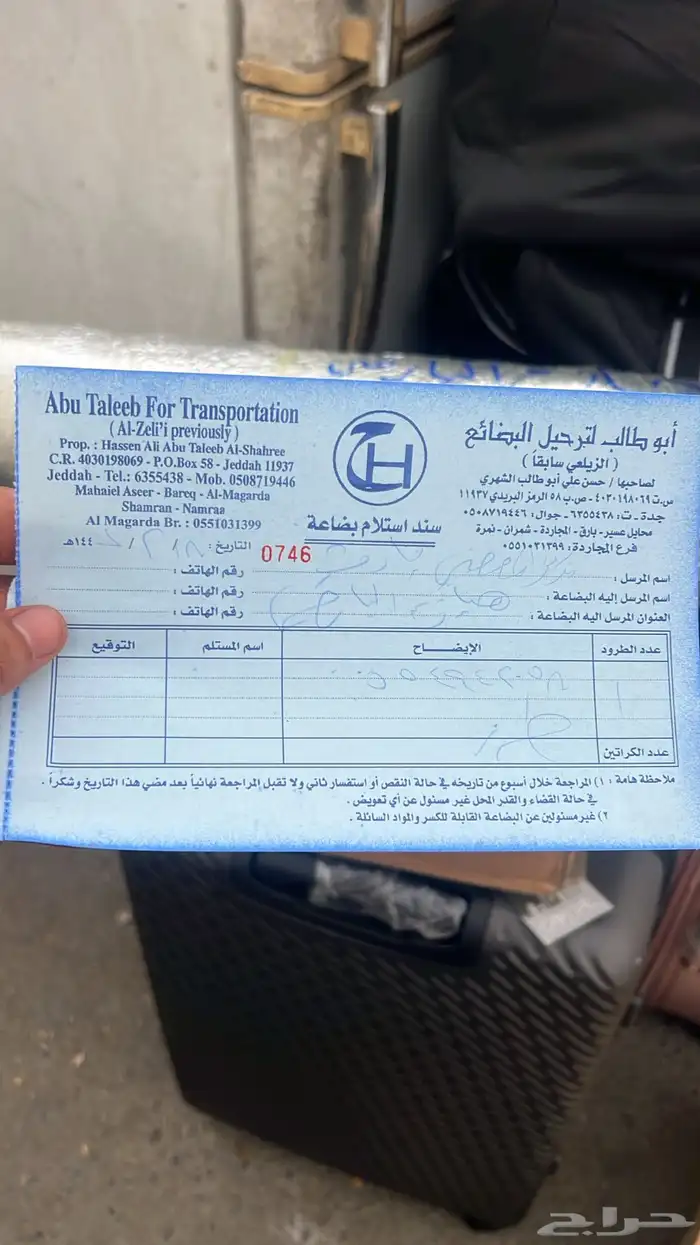 Abu Taleeb For Transportation
( Al-Zeli'i previously )
Prop. : Hassen Ali Abu Taleeb Al-Shahree
C.R. 4030198069 - P.O.Box 58 - Jeddah 11937
Jeddah - Tel.: 6355438 - Mob. 0508719446
Mahaiel Aseer - Bareq - Al-Magarda
Shamran - Namraa
Al Magarda Br. : 0551031399
H
سند استلام بضاعة
أبو طالب لترحيل البضائع
( الزيلعي سابقاً )
لصاحبها / حسن علي أبو طالب الشهري
س.ت ٤٠٣٠١٩٨٠٦٩ - ص.ب ٥٨ الرمز البريدي ١١٩٣٧
جدة - ت: ٦٣٥٥٤٣٨ - جوال: ٠٥٠٨٧١٩٤٤٦
محايل عسير - بارق - المجاردة - شمران - نمرة
فرع المجاردة: ٠٥٥١٠٣١٣٩٩
التاريخ : / / ١٤٤هـ
0746
اسم المرسل : رقم الهاتف :
اسم المرسل إليه البضاعة : رقم الهاتف :
العنوان المرسل إليه البضاعة : رقم الهاتف :
عدد الطرود الإيضـــاح اسم المستلم التوقيع
عدد الكراتين
ملاحظة هامة : ١) المراجعة خلال أسبوع من تاريخه في حالة النقص أو استفسار ثاني ولا تقبل المراجعة نهائياً بعد مضي هذا التاريخ وشكراً .
في حالة القضاء والقدر المحل غير مسئول عن أي تعويض .
٢) غير مسئولين عن البضاعة القابلة للكسر والمواد السائلة .
حراج